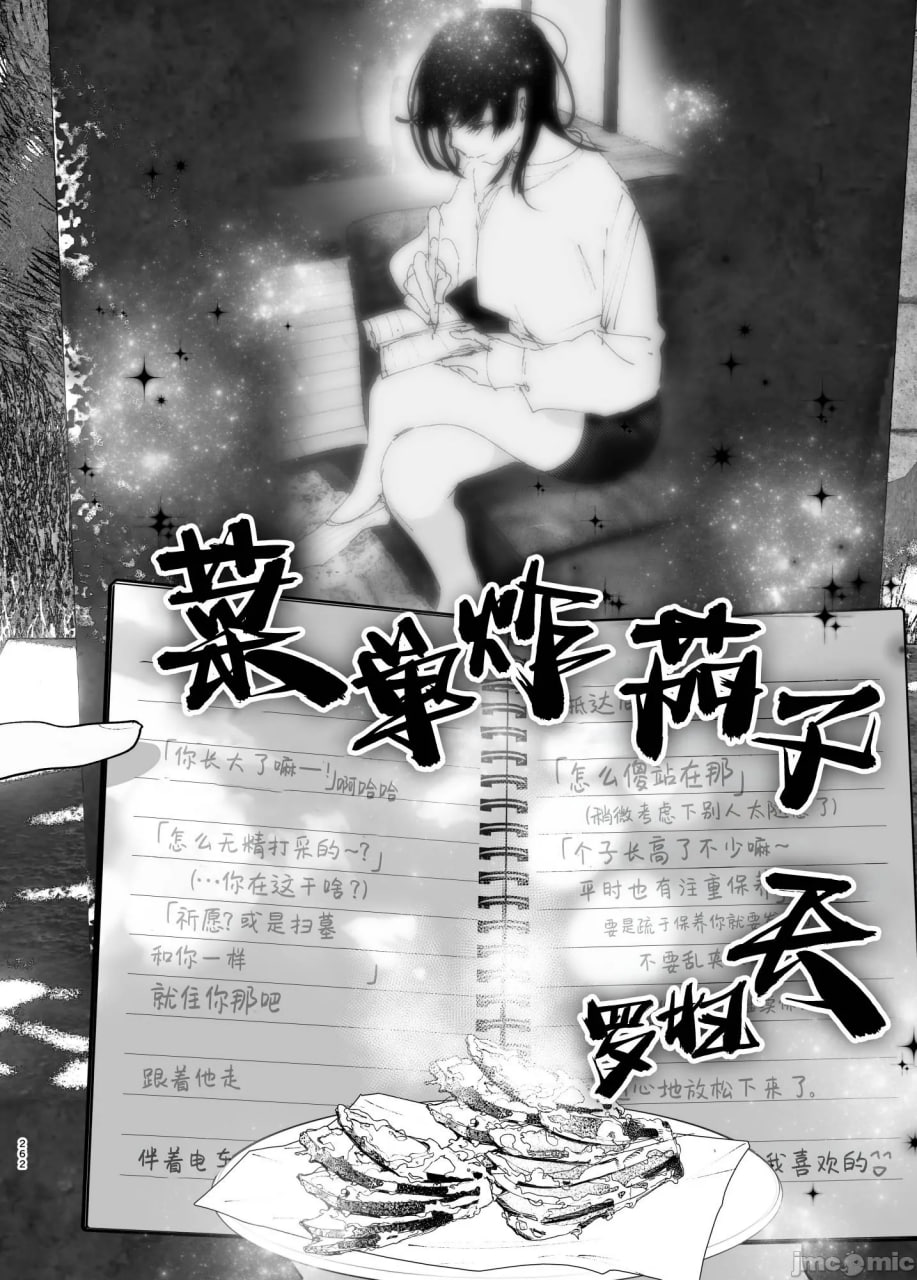 菜单炸茄子
罗勒天
「你长大了嘛一!」啊哈哈
「怎么无精打采的~?」
(…你在这干啥?)
「祈愿?或是扫墓
和你一样 」
就住你那吧
跟着他走
伴着电车
抵达
「怎么傻站在那」
(稍微考虑下别人太 了)
「个子长高了不少嘛~
平时也有注重保养
要是疏于保养你就要
不要乱来
心地放松下来了。
我喜欢的
262
jmcomic